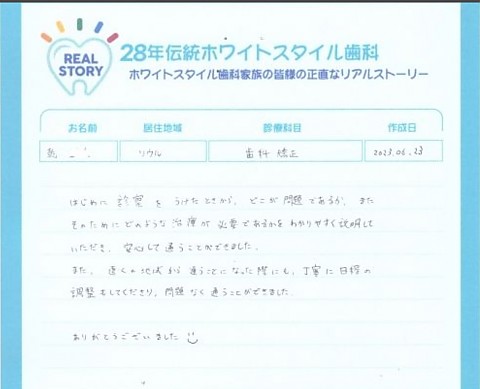 REAL
STORY
28年伝統ホワイトスタイル歯科
ホワイトスタイル歯科家族の皆様の正直なリアルストーリー
お名前 居住地域 診療科目 作成日
ソウル 歯科 矯正 2023.06.23
はじめに 診察 を うけたときから、どこが 問題 であるか、また
そのために どのような 治療が 必要 であるかを わかりやすく 説明して
いただき、安心して 通うことができました。
また、遠くの 地域 から 通うことに なった 際にも、丁寧に 日程の
調整をしてくださり、問題 なく 通うことができました。
ありがとうございました